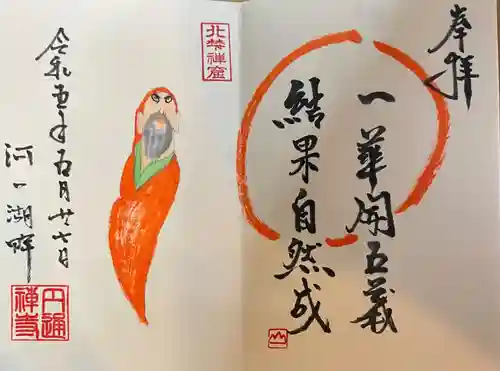 奉拝
一華開五葉
結果自然成
令和五年五月廿七日
河口湖畔
円通
禅寺